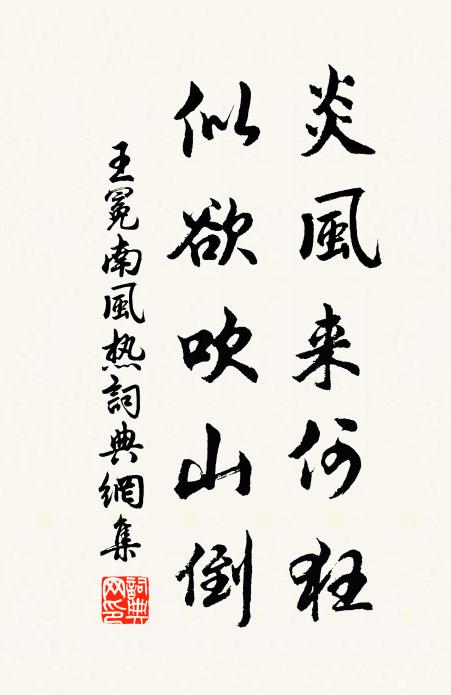 炎風来何狂
似欲吹山倒
王冕南風热詞典網集
詞典
网印